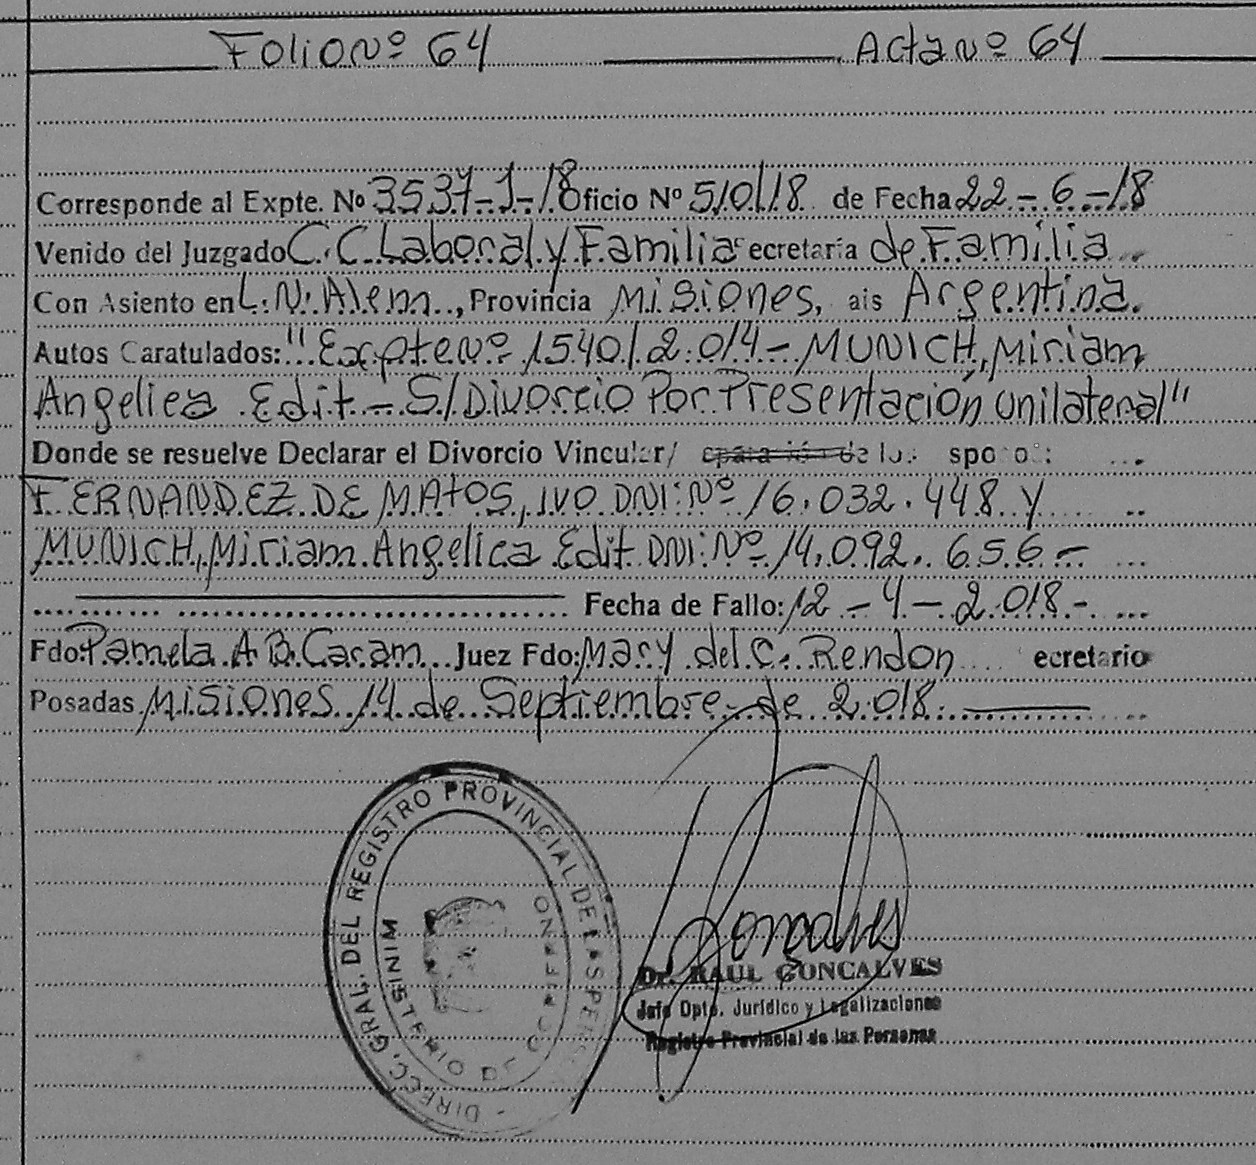 Folio Nº 64 Acta Nº 64
Corresponde al Expte. Nº 3537-J-18 Oficio Nº 510/18 de Fecha 22-6-18
Venido del Juzgado C.C. Laboral y Familia Secretaría de Familia
Con Asiento en L.N. Alem, Provincia Misiones, ais Argentina.
Autos Caratulados: "Expte Nº 1540/2.014- MUNICH, Miriam
Angelica Edit - S/Divorcio Por Presentación Unilateral"
Donde se resuelve Declarar el Divorcio Vincular/ eparación de los sposos:
FERNANDEZ DE MATOS, IVO DNI: Nº 16.032.448 Y
MUNICH, Miriam Angelica Edit DNI: Nº 14.092.656.-
Fecha de Fallo: 12-4-2.018-
Fdo: Pamela A B. Caram Juez Fdo: Mary del C. Rendon ecretario
Posadas, Misiones 14 de Septiembre de 2.018.
- DIRECC. GRAL. DEL REGISTRO PROVINCIAL DE LAS PERS
MINISTERIO DE GOBIERNO
Goncalves
Dr. RAUL GONCALVES
Jefe Dpto. Jurídico y Legalizaciones
Registro Provincial de las Personas